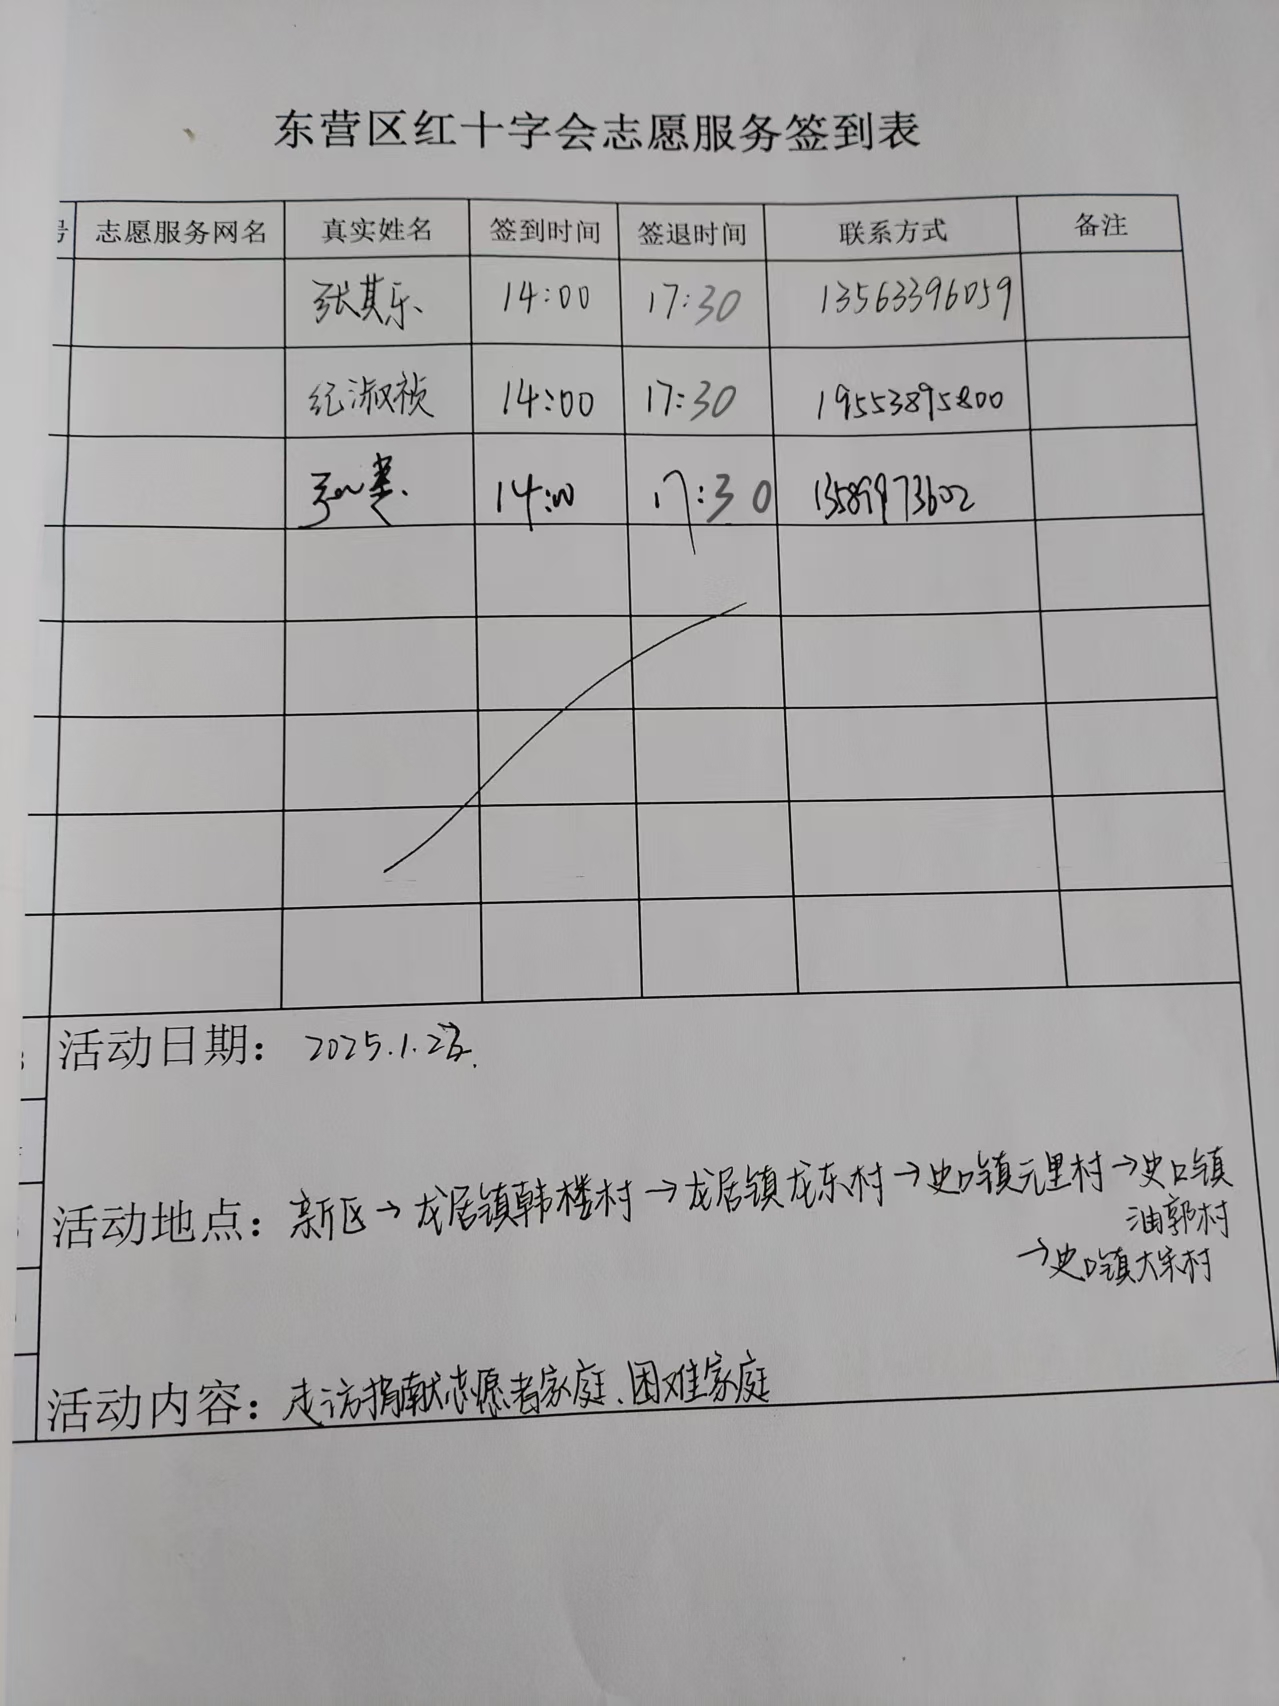 东营区红十字会志愿服务签到表
号 志愿服务网名 真实姓名 签到时间 签退时间 联系方式 备注
张其乐 14:00 17:30 13563396059
纪淑祯 14:00 17:30 19553895800
14:00 17:30 13589973602
活动日期： 2025.1.
活动地点：新区→龙居镇韩楼村→龙居镇龙东村→史口镇元里村→史口镇
油郭村
→史口镇大宋村
活动内容：走访捐献志愿者家庭、困难家庭